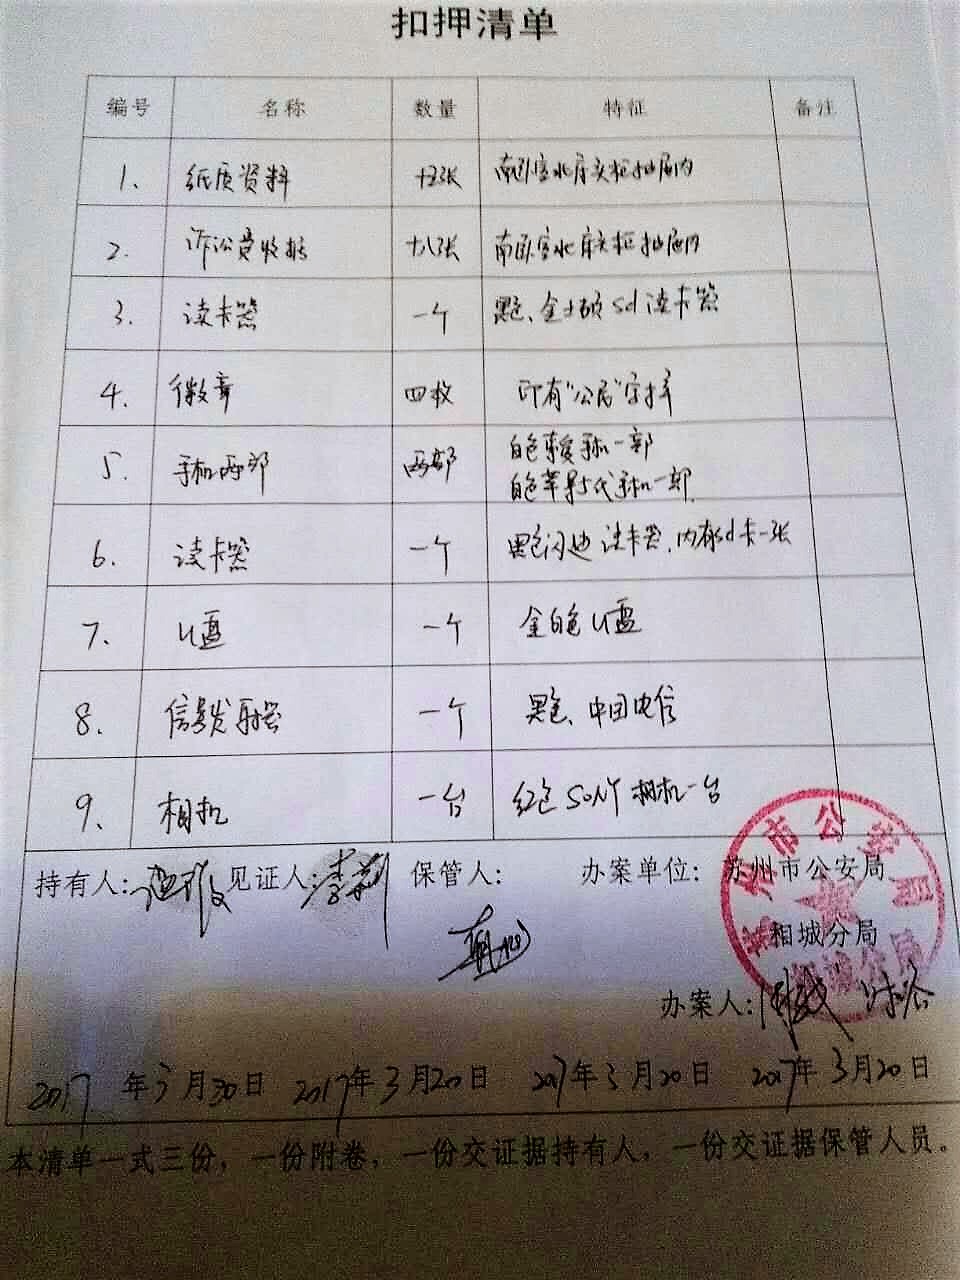 扣押清单
编号 名称 数量 特征 备注
1. 纸质资料 南卧室北床头柜抽屉内
2. 诉讼费收据 十八张 南卧室北床头柜抽屉内
3. 读卡器 一个 黑色、金士顿sd读卡器
4. 徽章 四枚 印有“公民”字样
5. 手机两部 两部 白色 手机一部
白色苹果5代手机一部
6. 读卡器 一个 黑色闪迪读卡器、内存sd卡一张
7. U盘 一个 金白色U盘
8. 信号发射器 一个 黑色、中国电信
9. 相机 一台 红色SONY相机一台
持有人: 见证人: 李 保管人: 办案单位: 苏州市公安局
相城分局
办案人:
2017年3月30日 2017年3月20日 2017年3月20日 2017年3月20日
本清单一式三份，一份附卷，一份交证据持有人，一份交证据保管人员。
苏州市公安局
相城分局